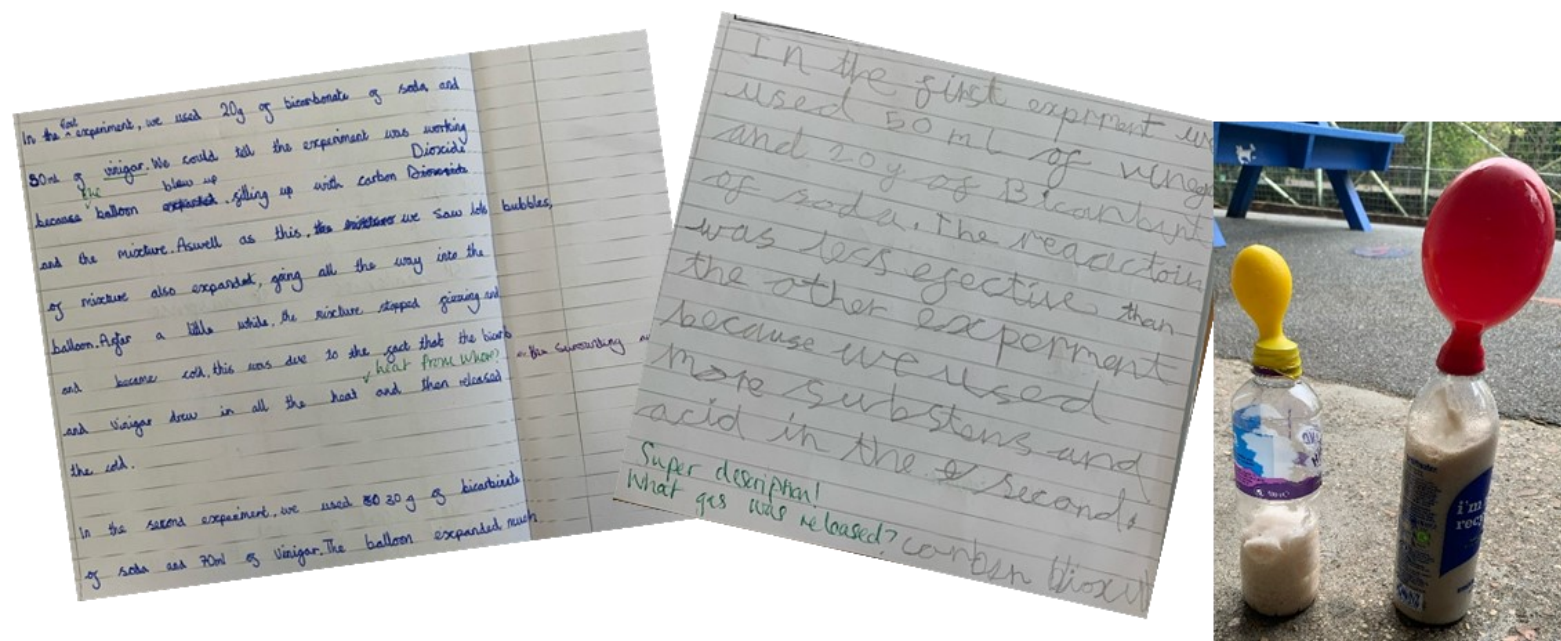 In the first experiment, we used 20g of bicarbonate of soda and
50ml of vinigar. We could tell the experiment was working
Dioxide
the blew up
because balloon expanded filling up with carbon
and the mixture. Aswell as this, we saw lots bubbles,
of mixture also expanded, going all the way into the
balloon. After a little while, the mixture stopped fizzing and
and became cold, this was due to the fact that the bicarb
heat from where? the surrounding
and vinigar drew in all the heat and then released
the cold.
In the second experiment, we used 30g of bicarbinate
of soda and 70ml of vinigar. The balloon expanded much
In the first exprment we
used 50 ml of vineg
and 20g of Bicarbynt
of soda. The reactoin
was less efective than
the other experment
because we used
more substens and
acid in the second.
Super description!
What gas was released?
carbon dioxi
i'm
recy